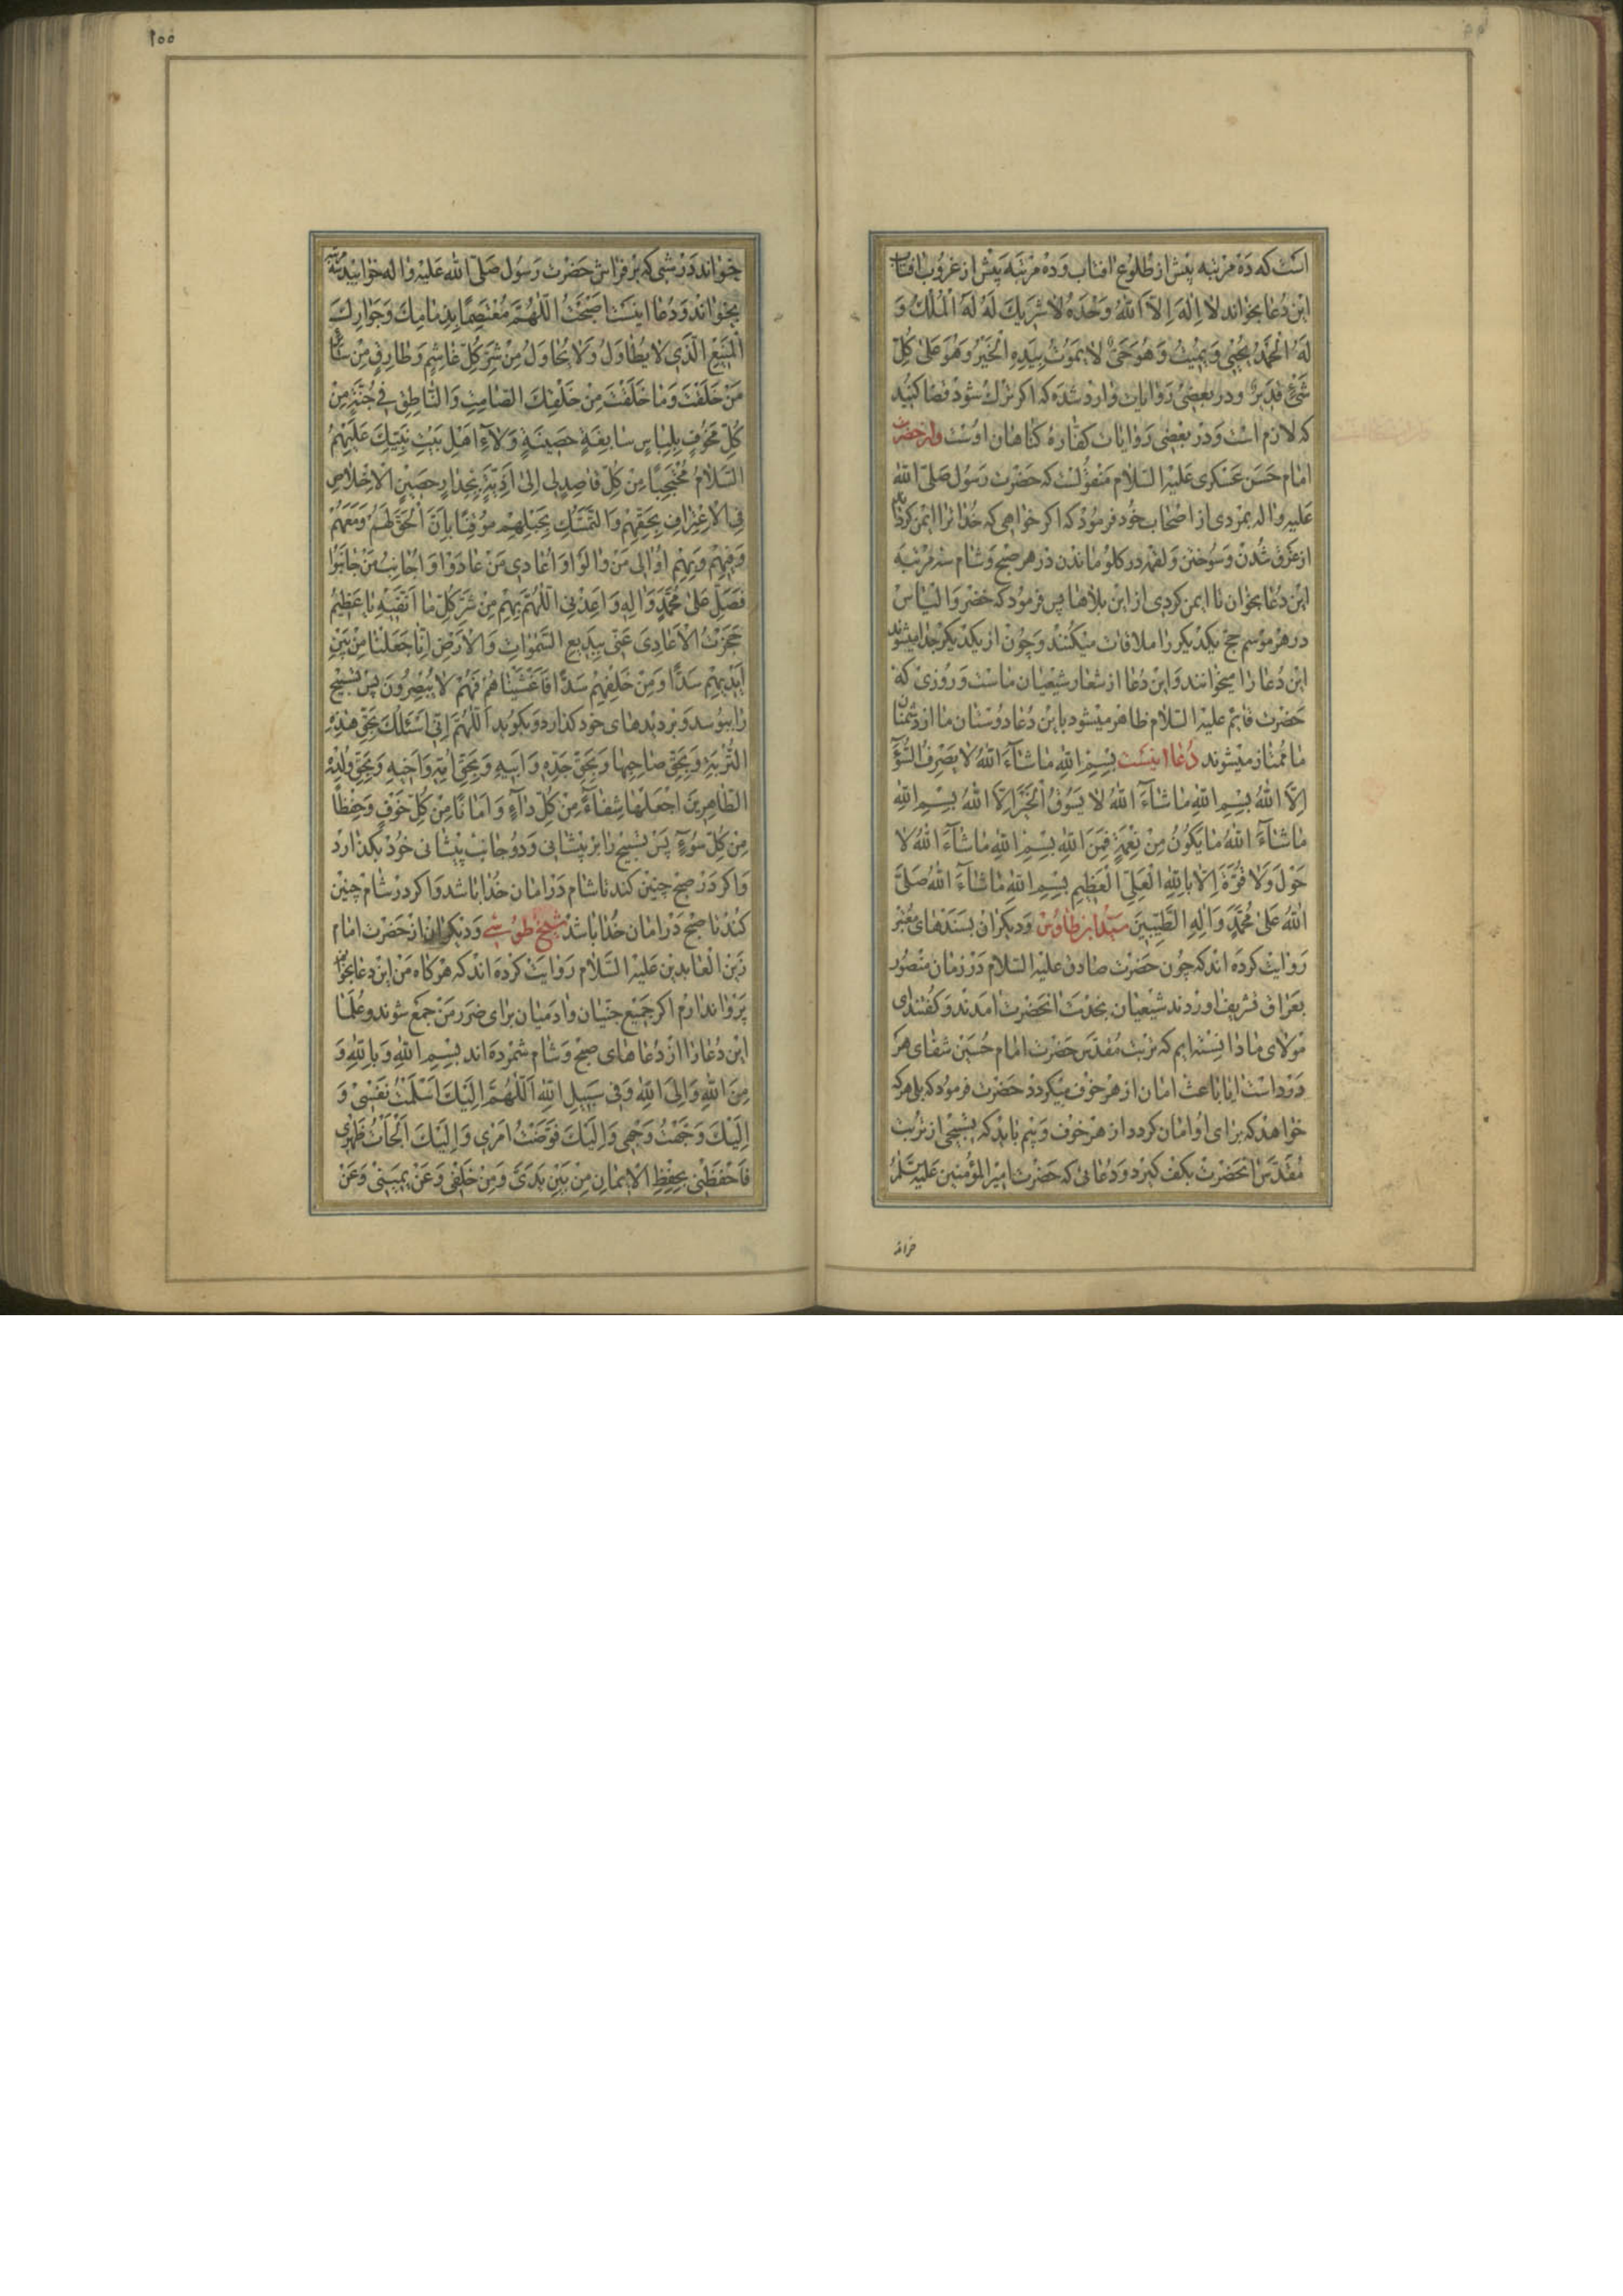 است که ده مرتبه پیش از طلوع افتاب و ده مرتبه پیش از غروب افتاب
این دعا بخواند لا اِلهَ اِلاَّ اللهُ وَحْدَهُ لا شَریكَ لَهُ لَهُ الْمُلْكُ وَ
لَهُ الْحَمْدُ یُحْیی وَ یُمیتُ وَ هُوَ حَیٌّ لا یَمُوتُ بِیَدِهِ الْخَیْرُ وَ هُوَ عَلی کُلِّ
شَیْءٍ قَدیرٌ و در بعضی روایات وارد شده که اکر ترك شود قضا کنید
که لازم است و در بعضی روایات کفاره کناهان اوست و از حضرت
امام حسن عسکری علیه السلام منقولست که حضرت رسول صلّی الله
علیه و اله بمردی از اصحاب خود فرمود که اکر خواهی که خدا ترا ایمن کرداند
از غرق شدن و سوختن و لقمه در کلو ماندن در هر صبح و شام سه مرتبه
این دعا بخوان تا ایمن کردی از این بلاها پس فرمود که خضر و الیاس
در هر موسم حج یکدیکر را ملاقات میکنند و چون از یکدیکر جدا میشوند
این دعا را میخوانند و این دعا از شعار شیعیان ماست و روزی که
حضرت قایم علیه السلام ظاهر میشود باین دعا دوستان ما از دشمنان
ما ممتاز میشوند دعا اینست بِسْمِ اللهِ ما شآءَ اللهُ لا یَصْرِفُ السُّوٓءَ
اِلاَّ اللهُ بِسْمِ اللهِ ما شآءَ اللهُ لا یَسُوقُ الْخَیْرَ اِلاَّ اللهُ بِسْمِ اللهِ
ما شآءَ اللهُ ما یَکُونُ مِنْ نِعْمَةٍ فَمِنَ اللهِ بِسْمِ اللهِ ما شآءَ اللهُ لا
حَوْلَ وَ لا قُوَّةَ اِلاّ بِاللهِ الْعَلِیِّ الْعَظیمِ بِسْمِ اللهِ ما شآءَ اللهُ صَلَّی
اللهُ عَلی مُحَمَّدٍ وَ الِهِ الطَّیِّبینَ سید ابن طاوس و دیکران بسندهای معتبر
روایت کرده اند که چون حضرت صادق علیه السلام در زمان منصور
بعراق تشریف اوردند شیعیان بخدمت انحضرت امدند و کفتند ای
مولای ما دانسته ایم که تربت مقدس حضرت امام حسین شفای هر
درد است ایا باعث امان از هر خوف میکردد حضرت فرمود که بلی هر که
خواهد که برای او امان کردد از هر خوف و بیم باید که تسبیحی از تربت
مقدس انحضرت بکف کیرد و دعائی که حضرت امیر المؤمنین علیه السلام
خوانده
۱۵۵
خواند در شبی که بر فراش حضرت رسول صلّی الله علیه و اله خوابید سه مرتبه
بخواند و دعا اینست اَصْبَحْتُ اللّهُمَّ مُعْتَصِمًا بِذِمامِكَ وَ جِوارِكَ
الْمَنیعِ الَّذی لا یُطاوَلُ وَ لا یُحاوَلُ مِنْ شَرِّ کُلِّ غاشِمٍ وَ طارِقٍ مِنْ سآئِرِ
مَنْ خَلَقْتَ وَ ما خَلَقْتَ مِنْ خَلْقِكَ الصّامِتِ وَ النّاطِقِ فی جُنَّةٍ مِنْ
کُلِّ مَخُوفٍ بِلِباسٍ سابِغَةٍ حَصینَةٍ وَلآءِ اَهْلِ بَیْتِ نَبِیِّكَ عَلَیْهِمُ
السَّلامُ مُحْتَجِبًا مِنْ کُلِّ قاصِدٍ لی اِلی اَذِیَّةٍ بِجِدارٍ حَصینٍ الْاِخْلاصِ
فِی الْاِعْتِرافِ بِحَقِّهِمْ وَ التَّمَسُّكِ بِحَبْلِهِمْ مُوقِنًا بِاَنَّ الْحَقَّ لَهُمْ وَ مَعَهُمْ
وَ فیهِمْ وَ بِهِمْ اُوالی مَنْ والَوْا وَ اُعادی مَنْ عادَوْا وَ اُجانِبُ مَنْ جانَبُوا
فَصَلِّ عَلی مُحَمَّدٍ وَ الِهِ وَ اَعِذْنِی اللّهُمَّ بِهِمْ مِنْ شَرِّ کُلِّ ما اَتَّقیهِ یا عَظیمُ
حَجَزْتُ الْاَعادِیَ عَنّی بِبَدیعِ السَّمواتِ وَ الْاَرْضِ اِنّا جَعَلْنا مِنْ بَیْنِ
اَیْدیهِمْ سَدًّا وَ مِنْ خَلْفِهِمْ سَدًّا فَاَغْشَیْناهُمْ فَهُمْ لا یُبْصِرُونَ پس تسبیح
را ببوسد و بر دیدهای خود کذارد و بکوید اَللّهُمَّ اِنّی اَسْئَلُكَ بِحَقِّ هذِهِ
التُّرْبَةِ وَ بِحَقِّ صاحِبِها وَ بِحَقِّ جَدِّهِ وَ اَبیهِ وَ بِحَقِّ اُمِّهِ وَ اَخیهِ وَ بِحَقِّ وُلْدِهِ
الطّاهِرینَ اجْعَلْها شِفآءً مِنْ کُلِّ دآءٍ وَ اَمانًا مِنْ کُلِّ خَوْفٍ وَ حِفْظًا
مِنْ کُلِّ سُوٓءٍ پس تسبیح را بر پیشانی و دو جانب پیشانی خود بکذارد
و اکر در صبح چنین کند تا شام در امان خدا باشد و اکر در شام چنین
کند تا صبح در امان خدا باشد شیخ طوسی و دیکران از حضرت امام
زین العابدین علیه السلام روایت کرده اند که هر کاه من این دعا بخوانم
پروا ندارم اکر جمیع جنیان و ادمیان برای ضرر من جمع شوند و علما
این دعا را از دعاهای صبح و شام شمرده اند بِسْمِ اللهِ وَ بِاللهِ وَ
مِنَ اللهِ وَ اِلَی اللهِ وَ فی سَبیلِ اللهِ اَللّهُمَّ اِلَیْكَ اَسْلَمْتُ نَفْسی وَ
اِلَیْكَ وَجَّهْتُ وَجْهی وَ اِلَیْكَ فَوَّضْتُ اَمْری وَ اِلَیْكَ اَلْجَاْتُ ظَهْری
فَاحْفَظْنی بِحِفْظِ الْایمانِ مِنْ بَیْنِ یَدَیَّ وَ مِنْ خَلْفی وَ عَنْ یَمینی وَ عَنْ